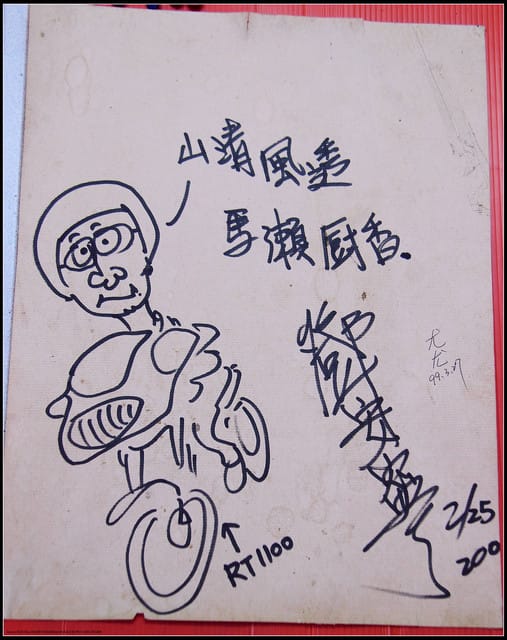 山清風透
馬瀨廚香.
鄭安盛
2/25
200
尤尤
99.3.27
RT1100